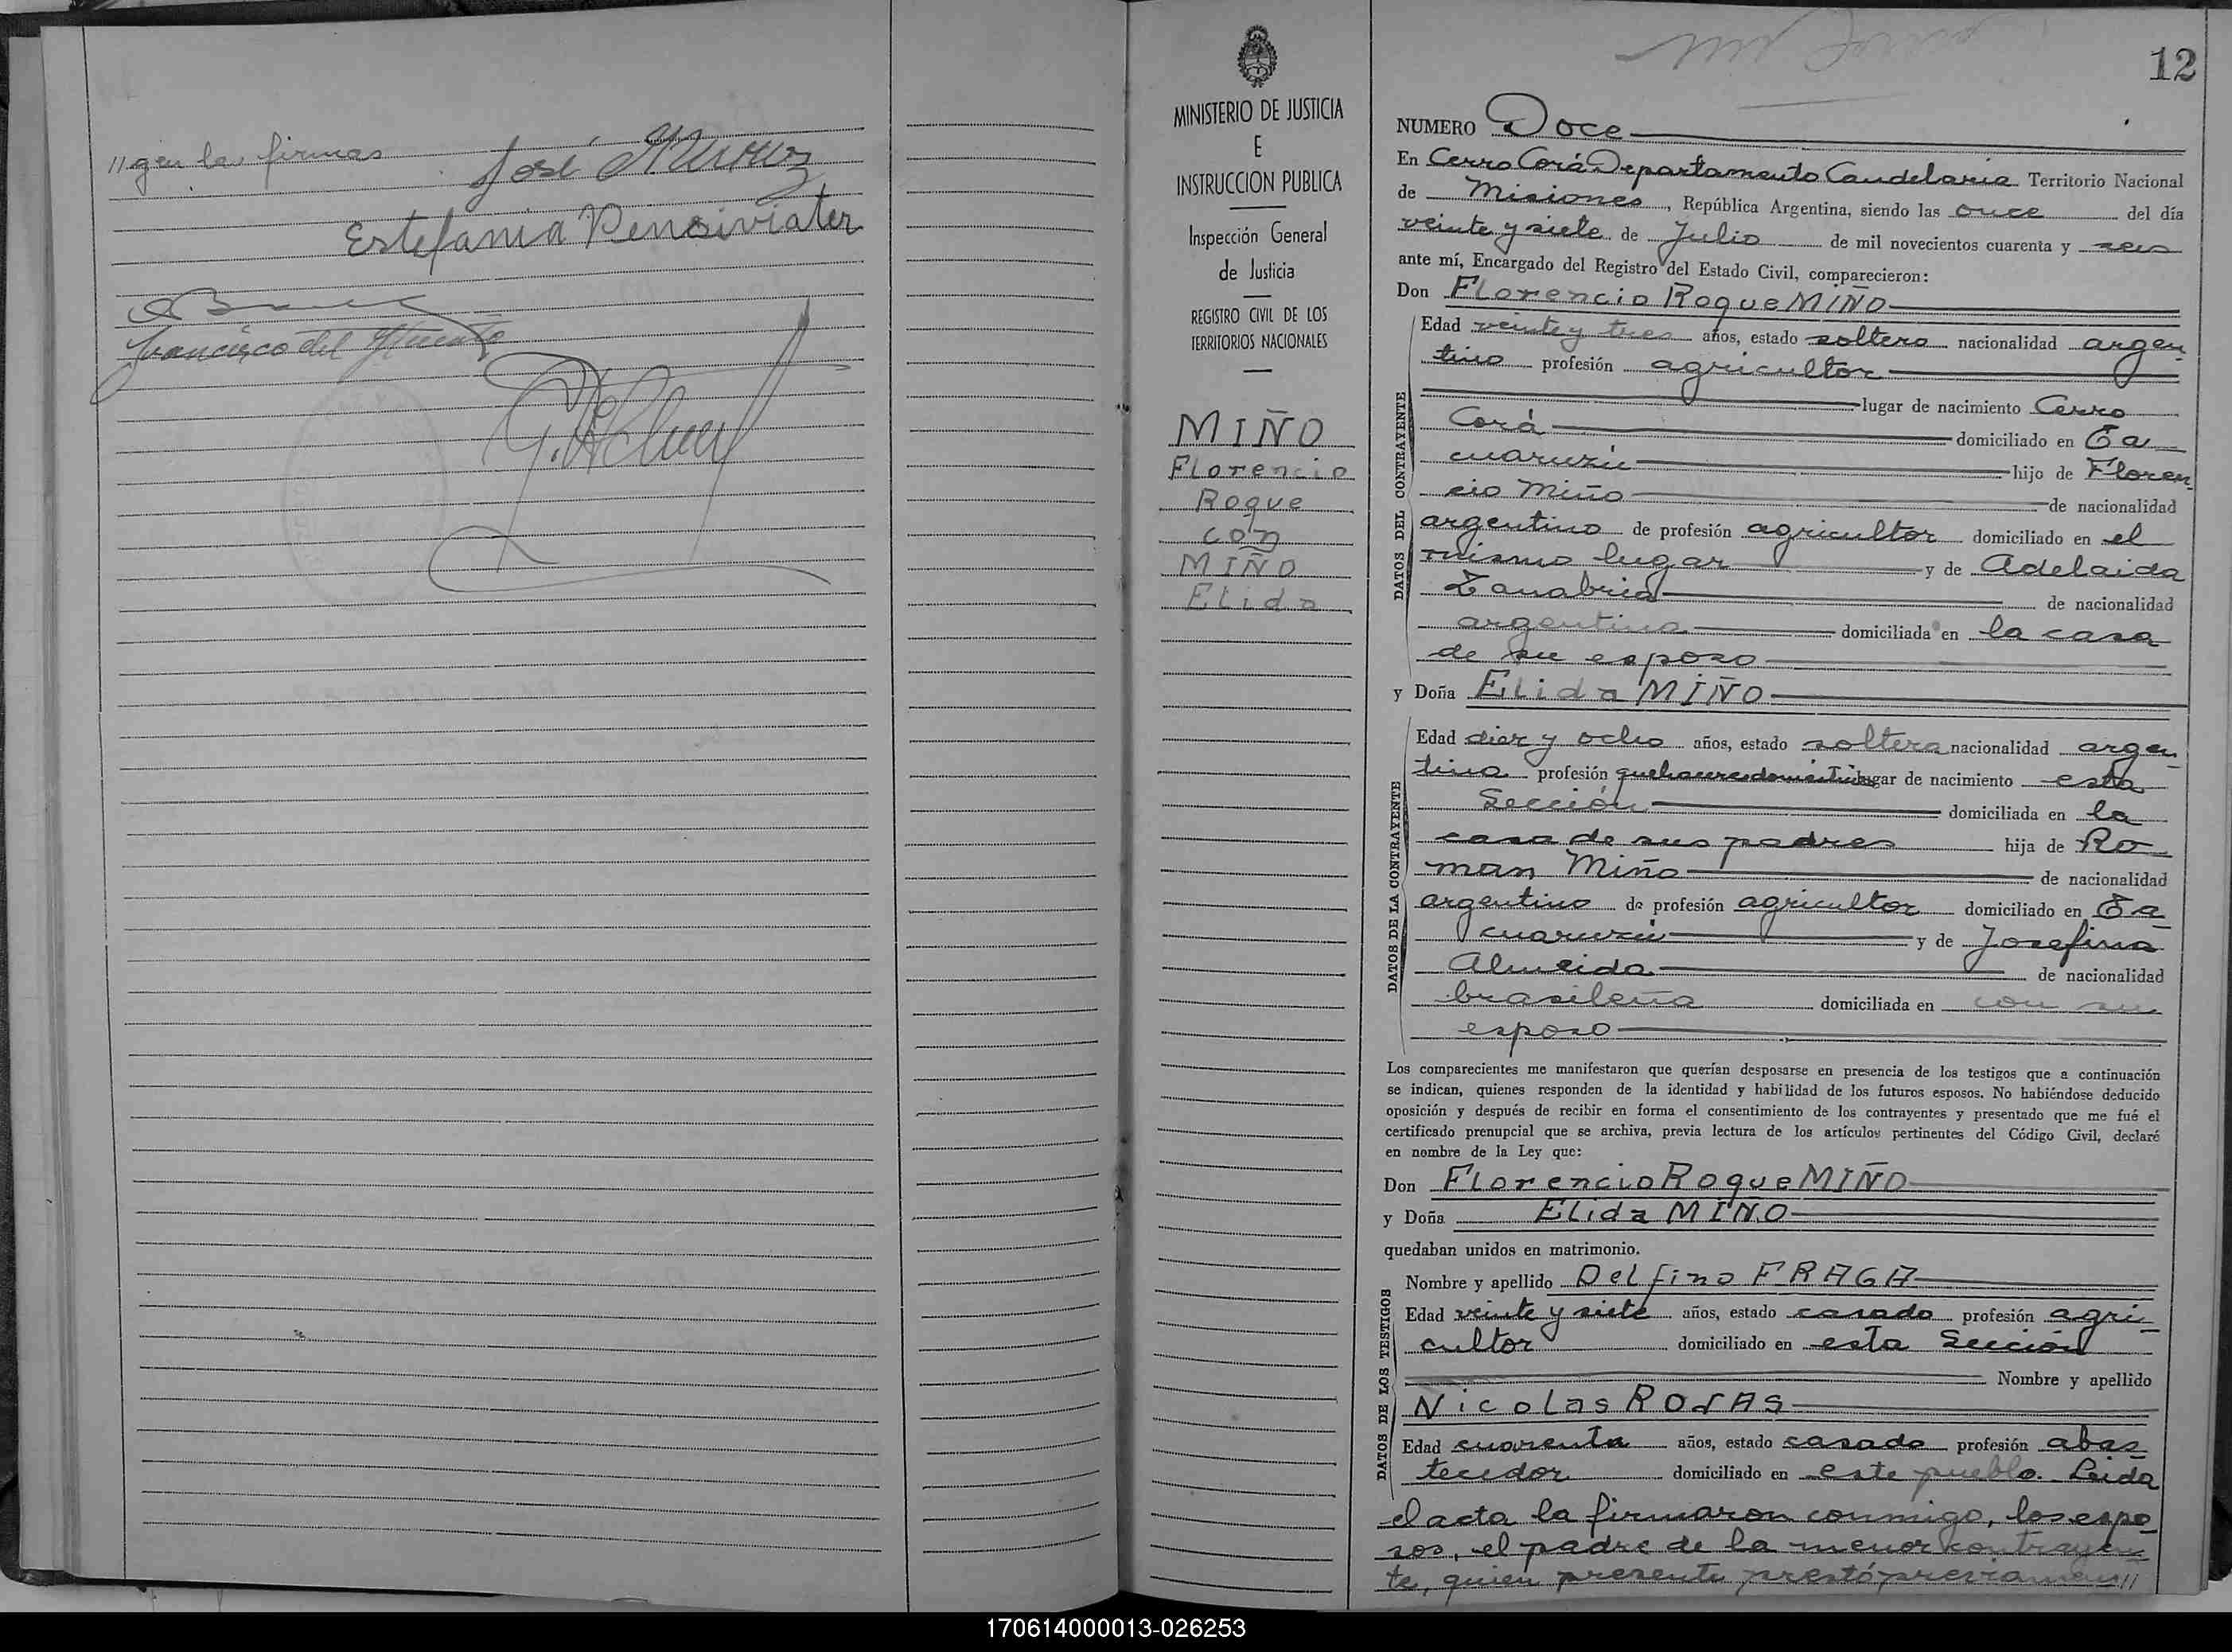 //gen las firmas
José Munoz
Estefania Pensiviater
Francisco del
12
MINISTERIO DE JUSTICIA
E
INSTRUCCION PUBLICA
Inspección General
de Justicia
REGISTRO CIVIL DE LOS
TERRITORIOS NACIONALES
MIÑO
Florencio
Roque
con
MIÑO
Elida
NUMERO Doce
En Cerro Corá Departamento Candelaria Territorio Nacional
de Misiones, República Argentina, siendo las once del día
veinte y siete de Julio de mil novecientos cuarenta y seis
ante mí, Encargado del Registro del Estado Civil, comparecieron:
Don Florencio Roque MIÑO
DATOS DEL CONTRAYENTE
Edad veinte y tres años, estado soltero nacionalidad argen_
tino profesión agricultor
lugar de nacimiento Cerro
Corá domiciliado en Ta_
cuaruzú hijo de Floren_
cio Miño de nacionalidad
argentino de profesión agricultor domiciliado en el
mismo lugar y de Adelaida
Zanabria de nacionalidad
argentina domiciliada en la casa
de su esposo
y Doña Elida MIÑO
DATOS DE LA CONTRAYENTE
Edad diez y ocho años, estado soltera nacionalidad argen_
tina profesión quehaceres domésticos lugar de nacimiento esta
Sección domiciliada en la
casa de sus padres hija de Ro_
man Miño de nacionalidad
argentino de profesión agricultor domiciliado en Ta_
cuaruzú y de Josefina
Almeida de nacionalidad
brasileña domiciliada en con su
esposo
Los comparecientes me manifestaron que querían desposarse en presencia de los testigos que a continuación
se indican, quienes responden de la identidad y habilidad de los futuros esposos. No habiéndose deducido
oposición y después de recibir en forma el consentimiento de los contrayentes y presentado que me fué el
certificado prenupcial que se archiva, previa lectura de los artículos pertinentes del Código Civil, declaré
en nombre de la Ley que:
Don Florencio Roque MIÑO
y Doña Elida MIÑO
quedaban unidos en matrimonio.
DATOS DE LOS TESTIGOS
Nombre y apellido Delfino FRAGA
Edad veinte y siete años, estado casado profesión agri_
cultor domiciliado en esta Sección
Nombre y apellido
Nicolas ROJAS
Edad cuarenta años, estado casado profesión abas_
tecedor domiciliado en este pueblo. Leida
el acta la firmaron conmigo, los espo_
sos, el padre de la menor contrayen_
te, quien presente prestó previamen//
170614000013-026253